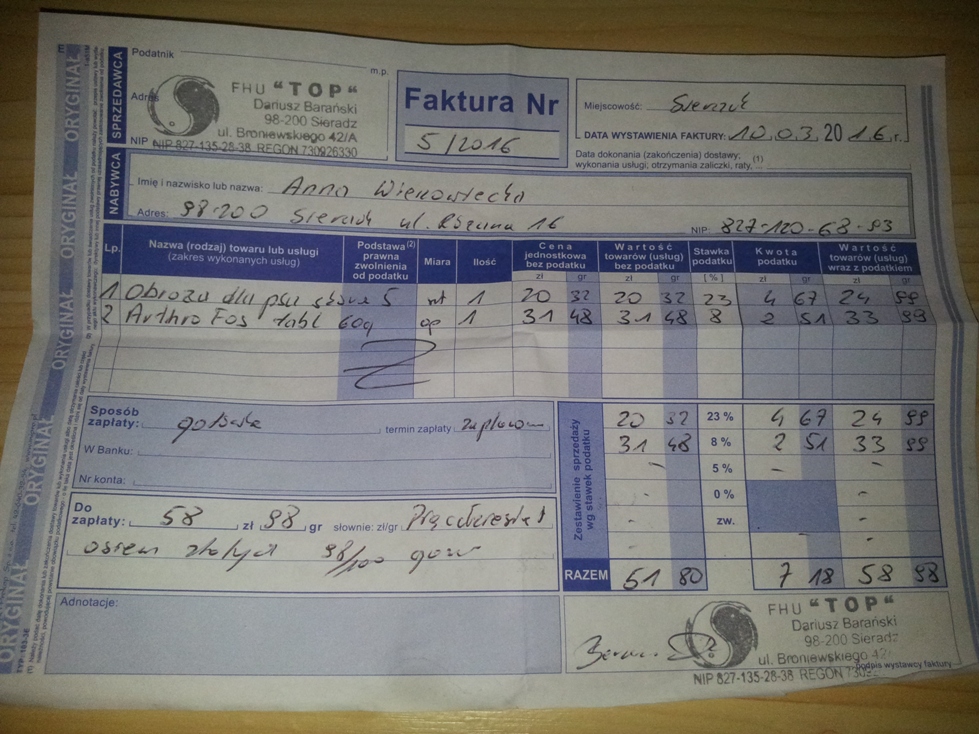 ORYGINAŁ ORYGINAŁ ORYGINAŁ ORYGINAŁ ORYGINAŁ
SPRZEDAWCA
Podatnik
m.p.
Adres
NIP
FHU "TOP"
Dariusz Barański
98-200 Sieradz
ul. Broniewskiego 42/A
NIP 827-135-28-38 REGON 730926330
Faktura Nr
5/2016
Miejscowość: Sieradz
DATA WYSTAWIENIA FAKTURY: 10.03.2016 r.
Data dokonania (zakończenia) dostawy,
wykonania usługi; otrzymania zaliczki, raty, ... (1)
NABYWCA
Imię i nazwisko lub nazwa: Anna
Adres: 98-200 Sieradz ul. 16 NIP: 827-120-68-93
Lp. Nazwa (rodzaj) towaru lub usługi (zakres wykonanych usług) Podstawa (2) prawna zwolnienia od podatku Miara Ilość Cena jednostkowa bez podatku Wartość towarów (usług) bez podatku Stawka podatku Kwota podatku Wartość towarów (usług) wraz z podatkiem
zł gr zł gr [%] zł gr zł gr
1 Obroża dla psa 5 1 20 32 20 32 23 4 67 24 99
2 ArthroFos tabl 60g op 1 31 48 31 48 8 2 51 33 99
Sposób zapłaty: gotówka termin zapłaty zapłacono
W Banku:
Nr konta:
Do zapłaty: 58 zł 98 gr słownie: zł/gr Pięćdziesiąt
osiem złotych 98/100 groszy
Zestawienie sprzedaży wg stawek podatku
20 32 23 % 4 67 24 99
31 48 8 % 2 51 33 99
- 5 % - -
- 0 % -
- zw. -
- - -
RAZEM 51 80 7 18 58 98
Adnotacje:
FHU "TOP"
Dariusz Barański
98-200 Sieradz
ul. Broniewskiego 42/
podpis wystawcy faktury
NIP 827-135-28-38 REGON
TYP: 103-3E